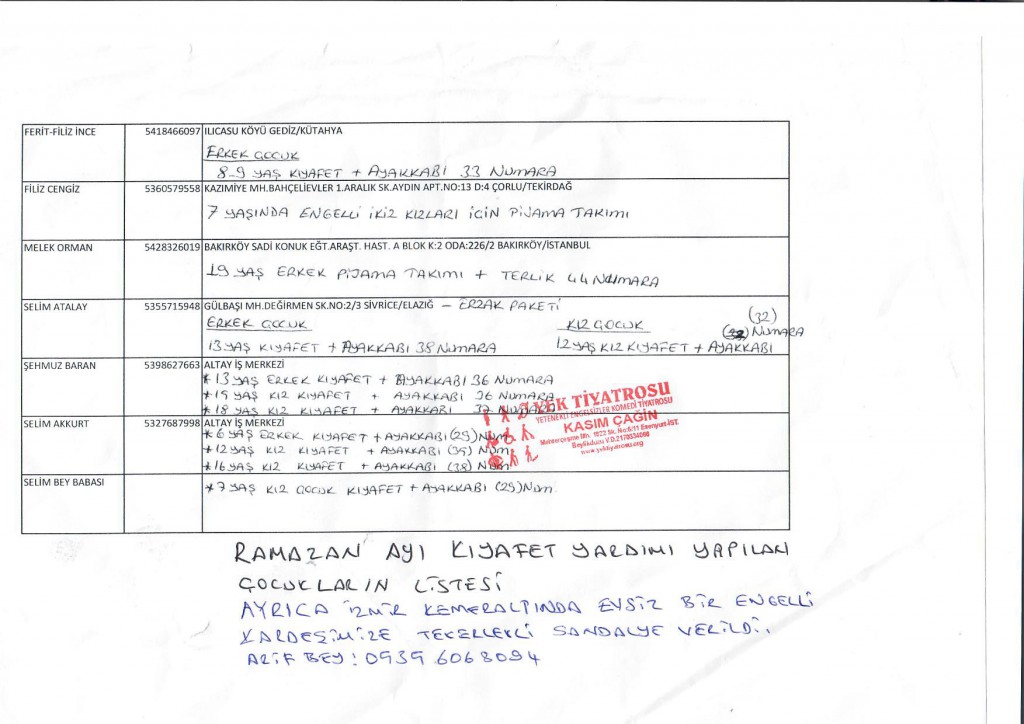 FERİT-FİLİZ İNCE 5418466097 ILICASU KÖYÜ GEDİZ/KÜTAHYA
ERKEK ÇOCUK
8-9 YAŞ KIYAFET + AYAKKABI 33 NUMARA
FİLİZ CENGİZ 5360579558 KAZIMİYE MH.BAHÇELİEVLER 1.ARALIK SK.AYDIN APT.NO:13 D:4 ÇORLU/TEKİRDAĞ
7 YAŞINDA ENGELLİ İKİZ KIZLARI İÇİN PİJAMA TAKIMI
MELEK ORMAN 5428326019 BAKIRKÖY SADİ KONUK EĞT.ARAŞT. HAST. A BLOK K:2 ODA:226/2 BAKIRKÖY/İSTANBUL
19 YAŞ ERKEK PİJAMA TAKIMI + TERLİK 44 NUMARA
SELİM ATALAY 5355715948 GÜLBAŞI MH.DEĞİRMEN SK.NO:2/3 SİVRİCE/ELAZIĞ – ERZAK PAKETİ
ERKEK ÇOCUK KIZ ÇOCUK (32)
NUMARA
13 YAŞ KIYAFET + AYAKKABI 38 NUMARA 12 YAŞ KIZ KIYAFET + AYAKKABI
ŞEHMUZ BARAN 5398627663 ALTAY İŞ MERKEZİ
* 13 YAŞ ERKEK KIYAFET + AYAKKABI 36 NUMARA
* 19 YAŞ KIZ KIYAFET + AYAKKABI 36 NUMARA
* 18 YAŞ KIZ KIYAFET + AYAKKABI 37 NUMARA
YEK TİYATROSU
YETENEKLİ ENGELSİZLER KOMEDİ TİYATROSU
KASIM ÇAĞIN
Beylikdüzü V.D.
www.yektiyatrosu.org
SELİM AKKURT 5327687998 ALTAY İŞ MERKEZİ
* 6 YAŞ ERKEK KIYAFET + AYAKKABI (29) NUM
* 12 YAŞ KIZ KIYAFET + AYAKKABI (39) NUM
* 16 YAŞ KIZ KIYAFET + AYAKKABI (38) NUM
SELİM BEY BABASI * 7 YAŞ KIZ ÇOCUK KIYAFET + AYAKKABI (29) NUM
RAMAZAN AYI KIYAFET YARDIMI YAPILAN
ÇOCUKLARIN LİSTESİ
AYRICA İZMİR KEMERALTINDA EVSİZ BİR ENGELLİ
KARDEŞİMİZE TEKERLEKLİ SANDALYE VERİLDİ.
ARİF BEY: 0939 6068094